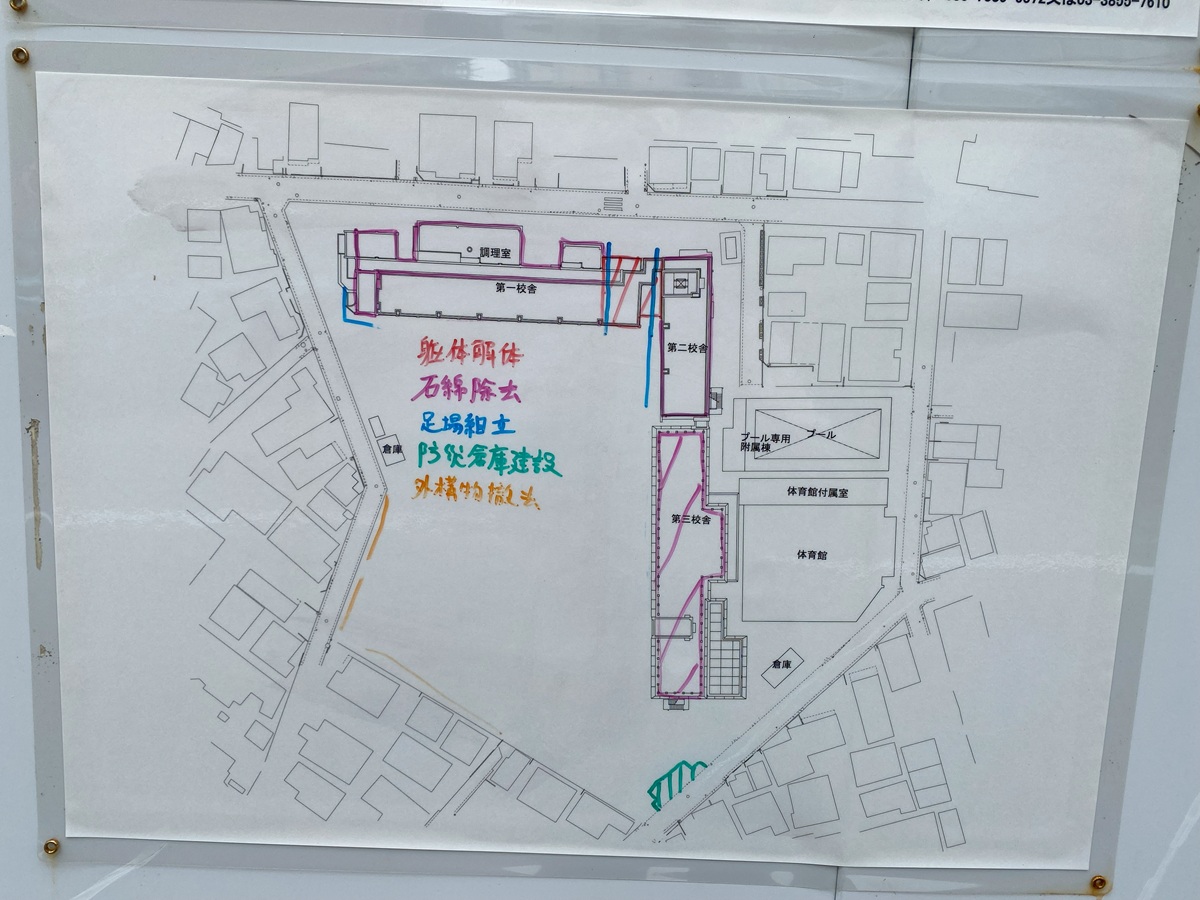 03-3855-7610
調理室
第一校舎
第二校舎
躯体解体
石綿除去
足場組立
防災倉庫建設
外構物撤去
倉庫
プール専用
附属棟
プール
体育館付属室
第三校舎
体育館
倉庫